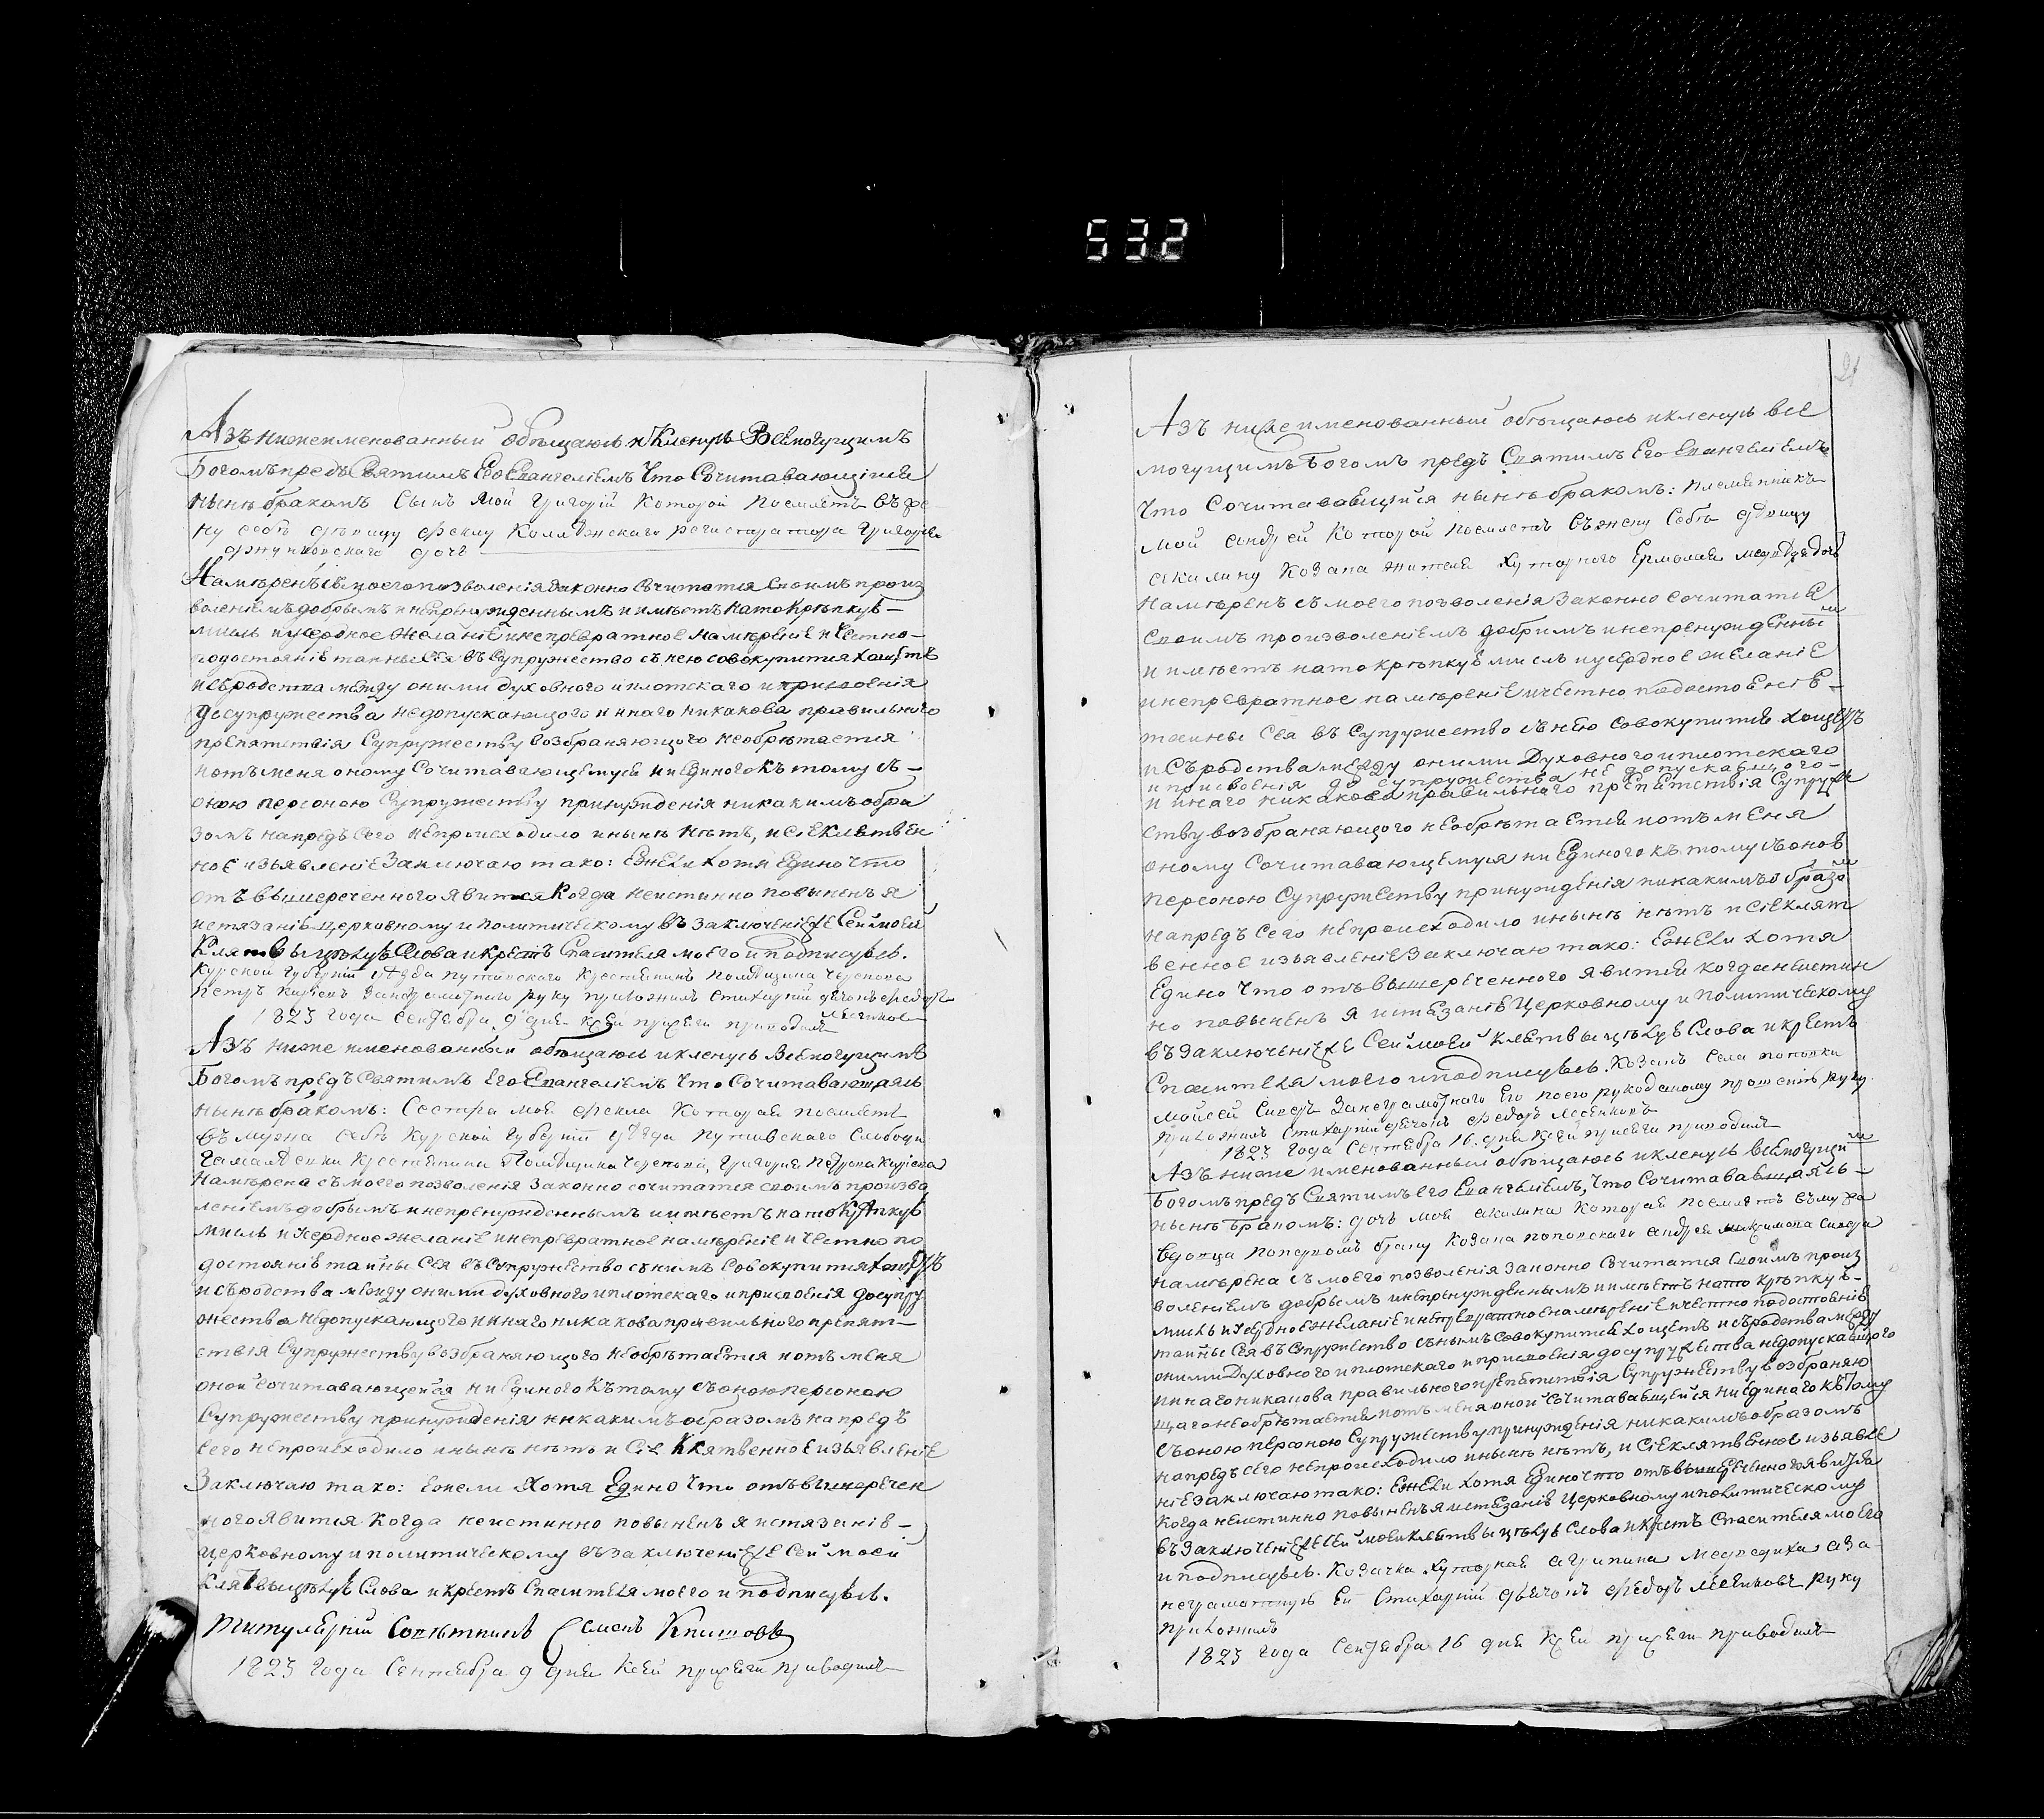 532
Азъ нижеименованный обѣщаюсь и кленусь Всемогущимъ
Богомъ предъ Святимъ Его Евангелїемъ Что Сочитавающїйся
нынѣ бракомъ Сынъ Мой Григорїй Которой поемлетъ въ же
ну себѣ дѣвицу Феклу Колѣжскаго регистратора Григорїя
дочь
Намѣренъ съ моего позволенїя Законно Сочитатся Своимъ произ
воленїемъ добрымъ и непренужденнымъ и имѣетъ на то крѣпкую
мысль и усердное желанїе и непревратное намѣренїе и честно
по достоянїю тайны Сея въ Супружество съ нею совокупитися хощетъ
и сродства между оними духовного и плотскаго и присвоенїя
до супружества недопускающого и инаго никакова правильного
препятствїя Супружеству возбраняющого необрѣтается
и отъ меня оному Сочитавающемуся ни единого къ тому съ
оною персоною Супружеству принужденїя никакимъ обра
зомъ напредъ сего непроисходило и нынѣ нѣтъ, и сїе клятвен
ное изъявленїе Заключаю тако: Ежели хотя едино что
отъ вышереченного явится Когда неистинно повыненъ я
истязанїю церковному и политическому въ Заключенїе же Сей моей
Клятвы цѣлую Слова и крестъ Спасителя моего и подписуюсь.
Курской Губернїи уѣзда путивского крестянинъ помѣщика
Петръ за неграмотного руку приложилъ стихарній дячокъ Федоръ
1823 года Сентебра 9 дня к сей присяги приводилъ
Азъ ниже именованный обѣщаюсь и кленусь Всемогущимъ
Богомъ предъ Святимъ Его Евангелїемъ Что Сочитавающаясь
нынѣ бракомъ: Сестра моя Фекла Которая поемлетъ
въ мужа себѣ Курской Губернїи уѣзда Путивского Слободи
крестянина Помѣщика Григорїя Петрова
Намѣрена съ моего позволенїя Законно сочитатся своимъ произво
ленїемъ добрымъ и непренужденнымъ и имѣетъ на то Крѣпкую
мысль и усердное желанїе и непревратное намѣренїе и честно по
достоянїю тайны Сея въ Супружество съ нимъ Совокупитися хощетъ
и сродства между оними духовного и плотскаго и присвоенїя до супру
жества недопускающого и инаго никакова правильного препят
ствїя Супружеству возбраняющого необрѣтается и отъ меня
оной сочитавающейся ни единого къ тому съ оною персоною
Супружеству принужденїя никакимъ образомъ напредъ
сего непроисходило и нынѣ нѣтъ и Сїе Клятвенное изъявленїе
Заключаю тако: ежели Хотя Едино что отъ вышеречен
ного явится Когда неистинно повыненъ я истязанїю
церковному и политическому въ заключенїе же Сей моей
клятвы цѣлую Слова и крестъ Спасителя моего и подписуюсь.
Титулярнїй Совѣтникъ Семенъ
1823 года Сентебра 9 дня к сей присяги приводилъ
21
Азъ ниже именованный обѣщаюсь и кленусь все
могущимъ Богомъ предъ Святимъ Его Евангелїемъ
Что Сочитавающїйся нынѣ бракомъ: племянникъ
мой Андрей Которой поемлетъ въ жену Себѣ дѣвицу
Акилину Козака жителя Хуторного Ермолая дочь
Намѣренъ съ моего позволенїя Законно сочитатся
Своимъ произволенїемъ добримъ и непренужденны
мъ
и имѣетъ на то крѣпкую мисль и усердное желанїе
и непревратное намѣренїе и честно по достоенїю
таины Сея въ Супружество съ нею совокупитися хощетъ
и Съродства между оними Духовного и плотскаго
и присвоенїя до супружества не допускающого
и инаго никакова правильнаго препятствїя Супруже
ству возбраняющого необрѣтается и отъ меня
оному Сочитавающемуся ни единого къ тому съ оною
персоною Супружеству принужденїя никакимъ образо
мъ
напредъ сего непроисходило и нынѣ нѣтъ и Сїе клят
венное изъявленїе Заключаю тако: ежели хотя
едино что отъ вышереченного явится когда неистин
но повыненъ я истязанїю Церковному и политическому
въ Заключенїе же Сей моей клятвы цѣлую Слова и крестъ
Спасителя моего и подписуюсь. Козакъ села поповки
Мойсей За неграмотного Его по его рукоданому прошенїю руку
приложилъ Стихарнїй дячокъ Федоръ
1823 года Сентебра 16 дня к сей присяги приводилъ
Азъ ниже именованный обѣщаюсь и кленусь всемогущи
мъ
Богомъ предъ Святимъ его Евангелїемъ, Что Сочитавающаясь
нынѣ бракомъ: дочь моя Акилина Которая поемлетъ въ мужа
вдовца по первомъ браку Козака поповского Андрея Максимова
Намѣрена съ моего позволенїя Законно Сочитатся Своимъ произ
воленїемъ добрымъ и непренужденнымъ и имѣетъ на то крѣпкую
мысль и Усердное желанїе и непревратное намѣренїе и честно по достоянїю
тайны Сея въ Супружество съ нымъ совокупитися хощетъ и съродства между
оними Духовного и плотскаго и присвоенїя до супружества недопускающого
и инаго никакова правильного препятствїя Супружеству возбраняю
щаго необрѣтается и отъ меня оной Сочитавающейся ни единаго къ тому
съ оною персоною Супружеству принужденїя никакимъ образомъ
напредъ сего непроисходило и нынѣ нѣтъ, и сїе клятвенное изъявле
нїе заключаю тако: ежели хотя едино что отъ вышереченного явится
Когда неистинно повыненъ я истязанїю Церковному и политическому
въ Заключенїе же сей моей клятвы цѣлую Слова и крестъ Спасителя моего
и подписуюсь. Козачка Хуторная Агрипина а за
неграмотную Ей Стихарнїй дьячокъ Федоръ руку
приложилъ
1823 года Сентебра 16 дня к сей присяги приводилъ